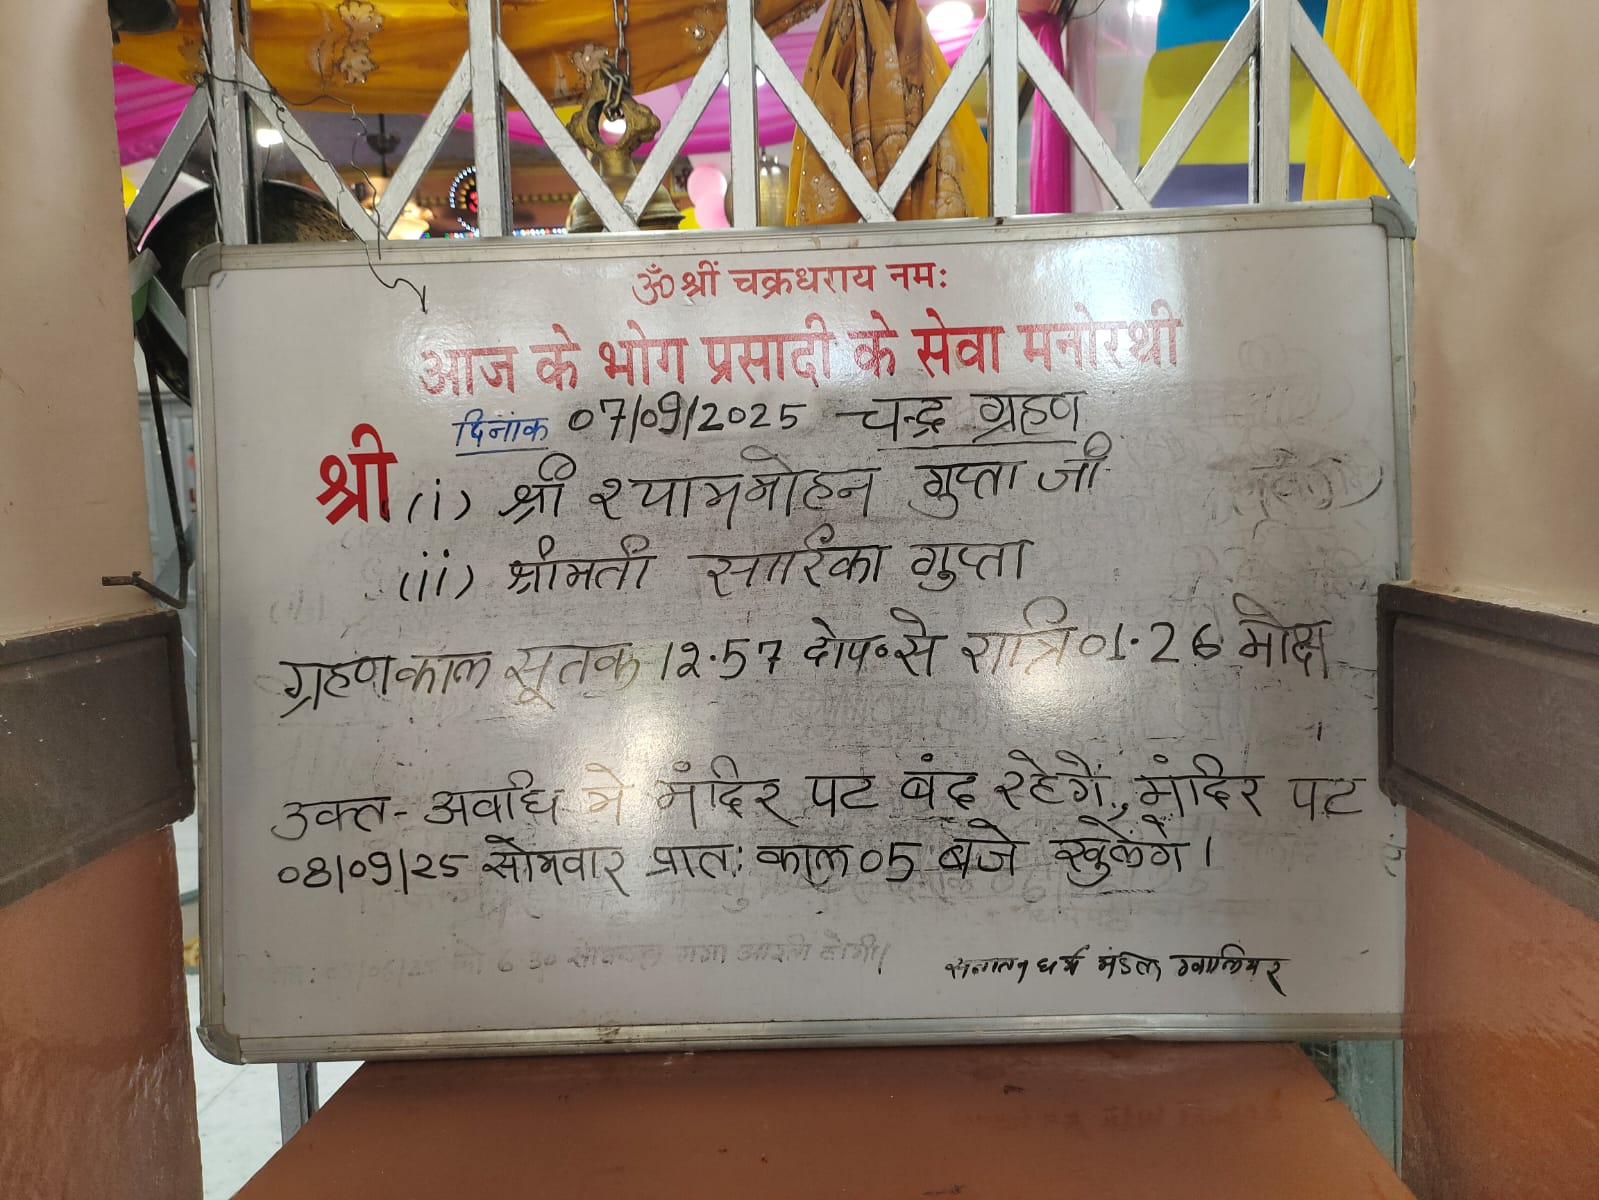 ॐ श्रीं चक्रधराय नमः
आज के भोग प्रसादी के सेवा मनोरथी
दिनांक 07/09/2025 चन्द्र ग्रहण
श्री (i) श्री श्याममोहन गुप्ता जी
(ii) श्रीमती सारिका गुप्ता
ग्रहणकाल सूतक 12.57 दोप॰ से रात्रि 01.26 मोक्ष
उक्त- अवधि मे मंदिर पट बंद रहेगें, मंदिर पट
08/09/25 सोमवार प्रातः काल 05 बजे खुलेंगे।
सनातन धर्म मंडल ग्वालियर